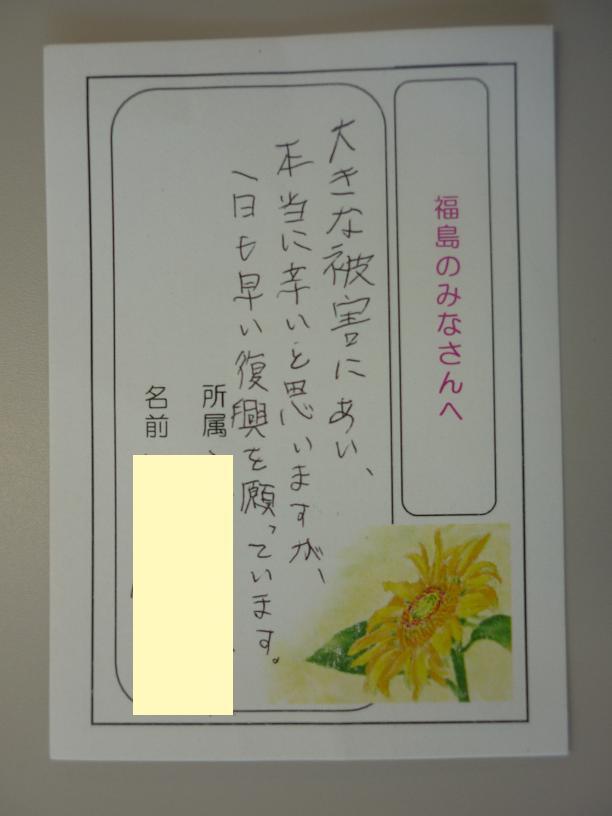 福島のみなさんへ
大きな被害にあい、
本当に辛いと思いますが、
一日も早い復興を願っています。
所属
名前